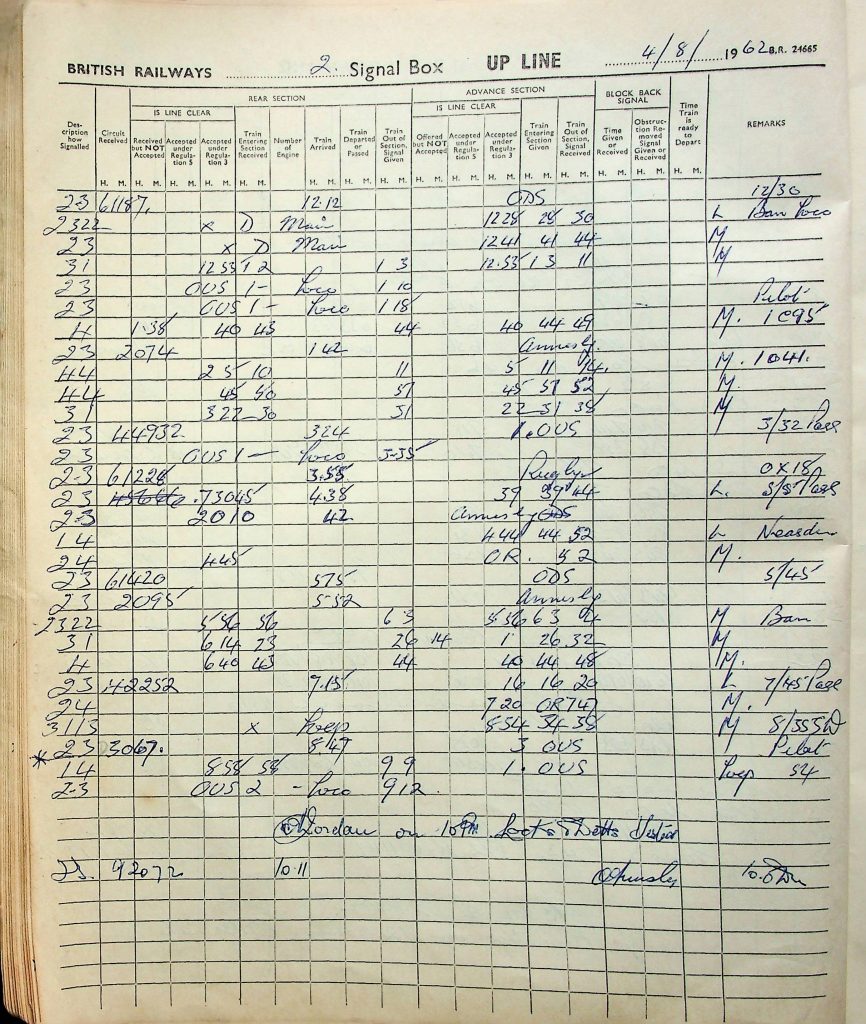 BRITISH RAILWAYS 2. Signal Box UP LINE 4/8/ 1962 B.R. 24665
Des- cription how Signalled
Circuit Received
REAR SECTION
IS LINE CLEAR
Received but NOT Accepted
Accepted under Regula- tion 5
Accepted under Regula- tion 3
Train Entering Section Received
Number of Engine
Train Arrived
Train Departed or Passed
Train Out of Section, Signal Given
ADVANCE SECTION
IS LINE CLEAR
Offered but NOT Accepted
Accepted under Regula- tion 5
Accepted under Regula- tion 3
Train Entering Section Given
Train Out of Section, Signal Received
BLOCK BACK SIGNAL
Time Given or Received
Obstruc- tion Re- moved Signal Given or Received
Time Train is ready to Depart
REMARKS
H. M. H. M. H. M. H. M. H. M. H. M. H. M. H. M. H. M. H. M. H. M. H. M. H. M. H. M. H. M.
2-3 61187. 12.12 ODS 12/30
2322 x D Main 1228 28 30 L Ban Loco
23 x D Main 1241 41 44 M
31 12 53 1 2 1 3 12.53 1 3 11 M
23 OUS 1 - Loco 1 10
23 OUS 1 - Loco 1 18 Pilot
4 1.38 40 43 44 40 44 49 M. 1C95
23 2074 1 42 Annesly.
44 2 5 10 11 5 11 14. M. 1041.
44 45 50 51 45 51 52 M.
31 3 22 30 31 22 31 38 M
23 44932 324 1. OUS 3/32 Pass
23 OUS 1 - Loco 3-35
2-3 61228 3.55 Rugby 0X18
23 73045 4.38 39 39 44 L.
2-3 2010 42 Annesly ODS
14 444 44 52 L Neasden
24 445 OR. 52 M.
23 61420 ODS 5/45
23 2095 5-52 Annesly
2322 5 56 56 6 3 5 56 6 3 M Ban
31 6 14 23 26 14 1 26 32 M
4 640 43 44 40 44 48 M.
23 42252 7.15 16 16 20 L 7/45 Pass
24 720 OR 747 M.
3113 x 834 34 35 M
* 23 3067. 8.47 3 OUS Pilot
14 858 58 9 9 1. OUS Loop
2-3 OUS 2 - Loco 9 12.
Jordan on 10 PM
23. 42072 10.11